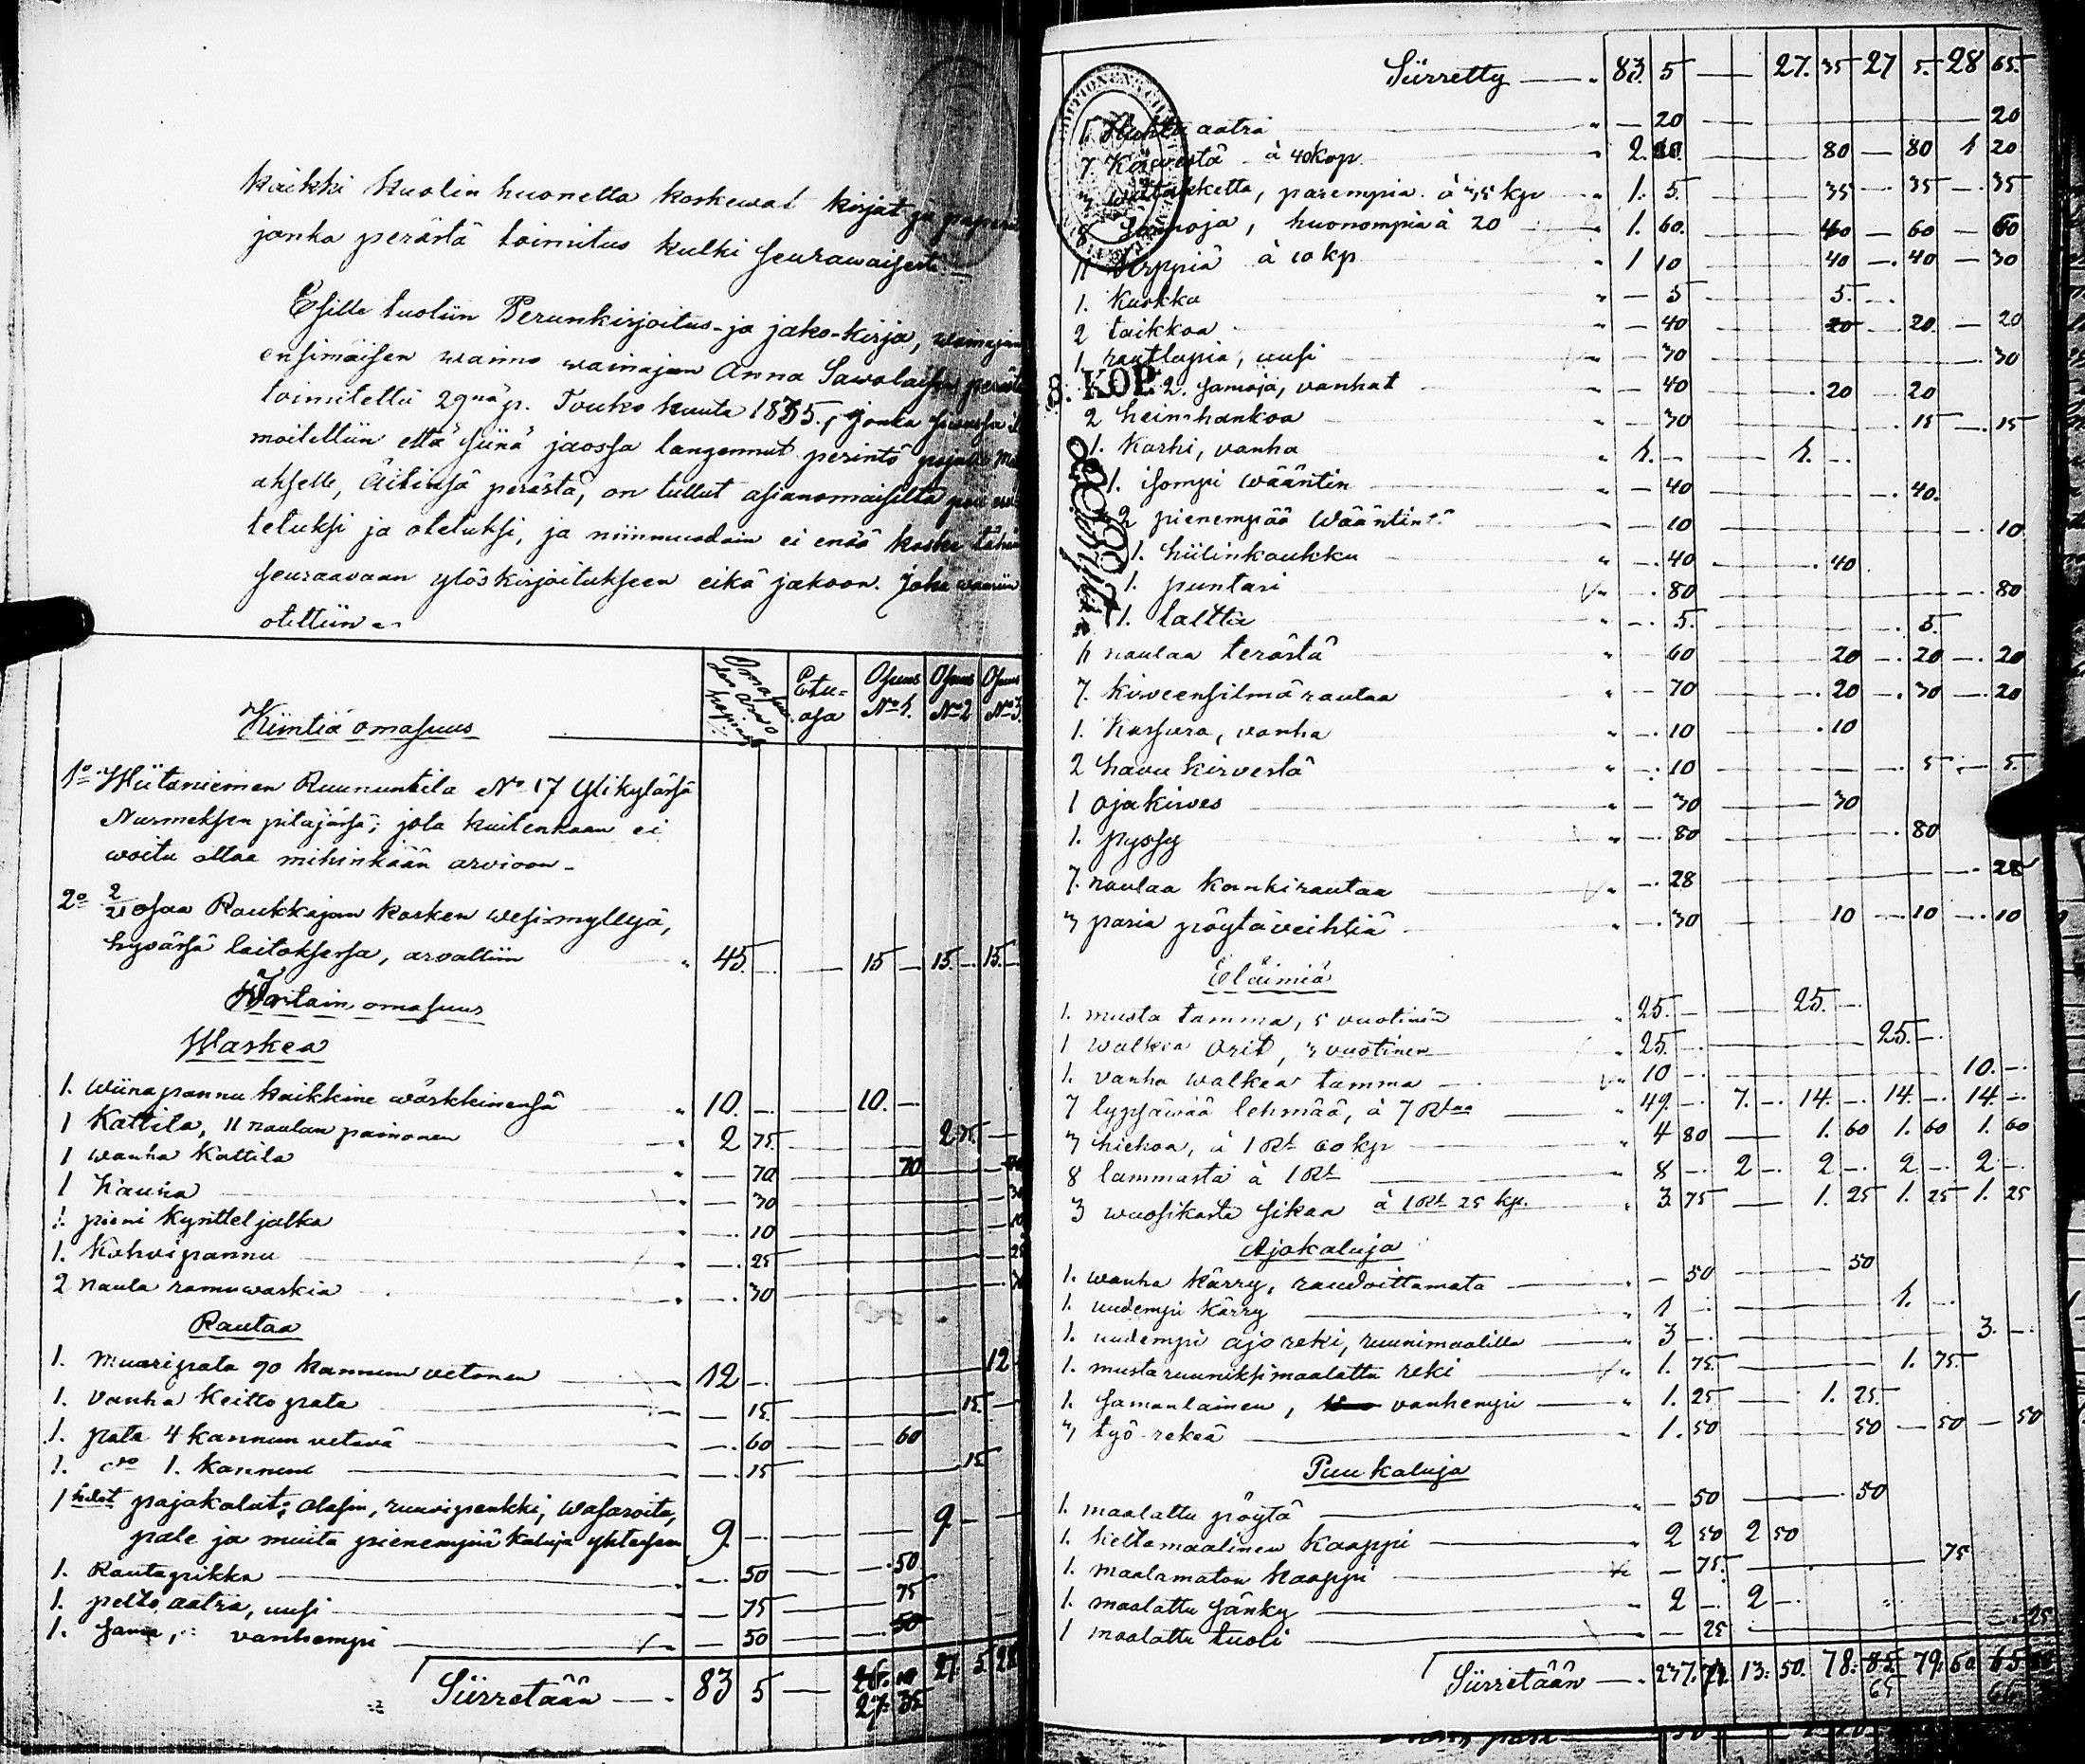 kaikki kuolin huonetta koskewat kirjat ja
jonka perästä toimitus kulki seurawaisesti.—
Esille tuotiin Perunkirjoitus- ja jako-kirja,
ensimäisen waimo wainajan Anna Sawolaisen perästä
toimitettu 29nä p. Toukokuuta 1855, jonka
moitettiin että siinä jaossa langennut perintö
ahselle, Äitinsä perästä, on tullut asianomaisilta
tetuksi ja otetuksi, ja niinmuodoin ei enää koske tähän
seuraavaan ylöskirjoitukseen eikä jakoon. Joka
otettiin
Kiintiä omasuus
Etu-osa Osuus No 1. Osuus No 2 Osuus No 3.
1o Wiitaniemen Ruununtila No 17 Ylikylässä
Nurmeksen pitäjässä, jota kuitenkaan ei
woitu ottaa mihinkään arvioon —
2o 2/21 osaa Raukkajan kosken wesimyllyä,
hyvässä laitoksessa, arvattiin 45. — 15 — 15. — 15. —
Irtain omasuus
Waskea
1. Wiinapannu kaikkine wärkkinensä 10. — 10. —
1 Kattila, 11 naulan painonen 2 75. 2 75.
1 wanha Kattila — 70 70
1 Kauha — 30 30
1. pieni kynttel jalka — 10 10
1. Kahvipannu — 25 25
2 naula romuwaskia — 30 30
Rautaa
1. Muuripata 90 kannun vetonen 12 — 12
1. Vanha Keitto pata — 15. 15.
1. pata 4 kannun vetävä — 60 60
1. do 1. kannun — 15 15
1 pajakalut; Alasin, ruuvipenkki, Wasaroita,
palje ja muita pienempiä kaluja yhteisen 9. — 9. —
1. Rautapikka — 50 50
1. pelto aatra, uusi — 75 75
1. sama, vanhempi — 50 50
Siirretään — 83 5 — 27. 35 27. 5. 28
Siirretty — 83. 5 — 27. 35 27 5. 28 65.
1 aatra — 20 20
7 Kirvestä à 40 kop 2. 80. 80 — 80 1 20
3 wittakketta, parempia à 35 kp 1. 5. 35 — 35 — 35
8 samoja, huonompia à 20 1. 60. 40 — 60 — 60
11 Sirppiä à 10 kp 1 10 40 — 40 — 30
1. Kuokka — 5 5.
2 taikkoa — 40 20 20. — 20
1. rautlapia, uusi — 30 30
8. KOP. 2. samoja, vanhat — 40 20 — 20
2 heinhankoa — 30 15 — 15
1. Karhi, vanha 1. — 1. —
1. isompi wääntin — 40 40.
2 pienempää wääntintä — 10 10
1. hiilinkoukku — 40 40
1. puntari — 80 80
1. taltta — 5. 5.
naulaa terästä — 60 20 — 20 — 20
7. kirveensilmä rautaa — 70 20 — 30 — 20
1. Kassara, vanha — 10 10
2 havu kirvestä — 10 5 — 5.
1 ojakirves — 30 30
1. pyssy — 80 80
7. naulaa kankirautaa — 28 28
3 paria pöytäveihtiä — 30 10 — 10 — 10
Eläimiä
1. musta tamma, 5 vuotinen 25. — 25. —
1 walkea Orit, 3 vuotinen 25. — 25. —
1. vanha walkea tamma 10 — 10. —
7 lypsäwää lehmää, à 7 Rt 49. — 7. — 14. — 14. — 14 —
3 hiehoa, à 1 Rt 60 kp 4 80 — 1. 60 1. 60 1. 60
8 lammasta à 1 Rt 8 — 2 — 2 — 2 — 2 —
3 wuosikasta sikaa à 1 Rt 25 kp. 3 75 — 1. 25 1. 25 1. 25
Ajokaluja
1. wanha kärry, raudoittamata — 50 50
1. uudempi kärry 1 — 1. —
1. uudempi ajo reki, ruunimaalilla 3 — 3. —
1. mustaruuniksi maalattu reki 1. 75. 1. 75.
1. samanlainen, vanhempi 1. 25 1. 25.
3 työ-rekeä 1. 50 50 — 50 — 50
Puu kaluja
1. maalattu pöytä — 50 50
1. keltamaalinen kaappi 2 50 2 50
1. maalamaton kaappi — 75. 75
1. maalattu sänky 2 — 2 —
1 maalattu tuoli — 25 25
Siirretään — 237. 13. 50. 78. 85. 79. 60 65
65